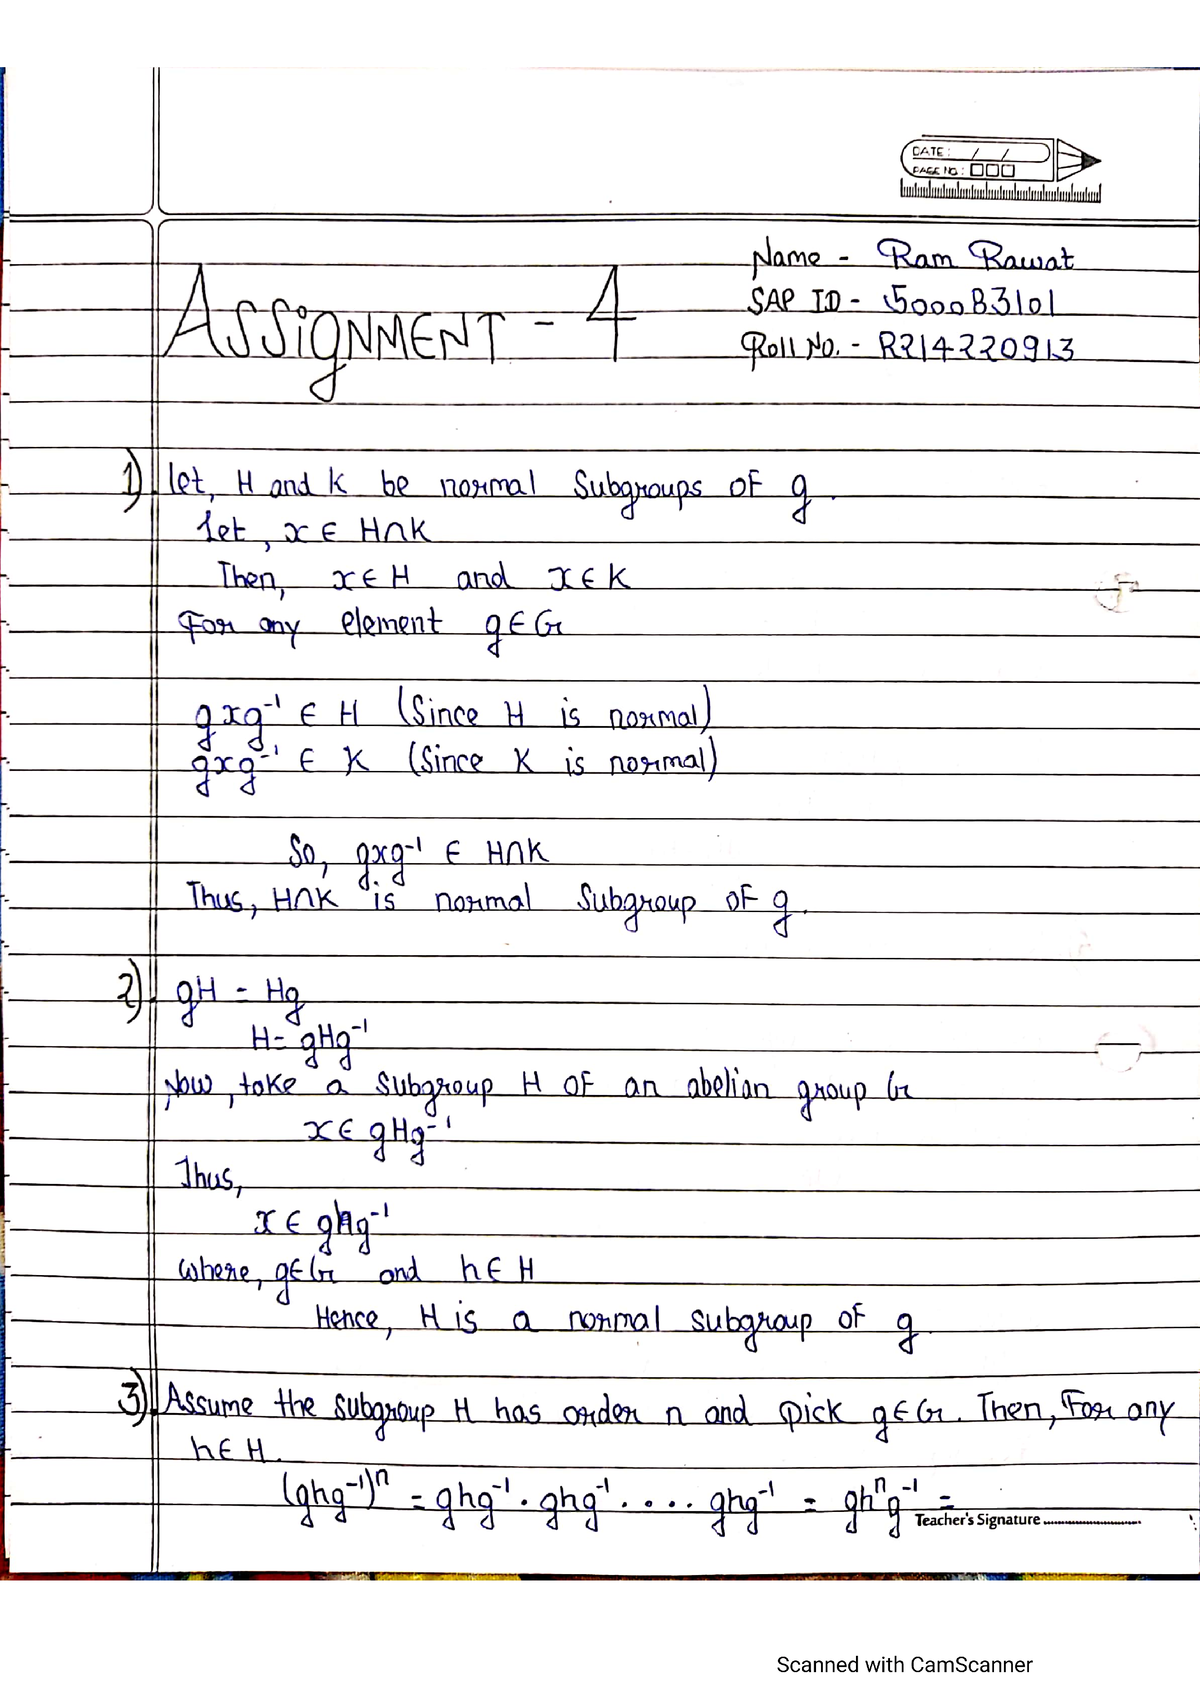 DATE: / /
PAGE NO:
Name - Ram Rawat
SAP ID - 500083101
Roll No. - R214220913
ASSiGNMENT - 4
1) let, H and K be normal Subgroups OF g.
Let, x ∈ H∩K
Then, x ∈ H and x ∈ K
For any element g ∈ G
gxg⁻¹ ∈ H (Since H is normal)
gxg⁻¹ ∈ K (Since K is normal)
So, gxg⁻¹ ∈ H∩K
Thus, H∩K is normal Subgroup OF g.
2) gH = Hg
H = gHg⁻¹
Now, take a subgroup H OF an abelian group G
x ∈ gHg⁻¹
Thus,
x ∈ ghg⁻¹
where, g ∈ G and h ∈ H
Hence, H is a normal subgroup OF g
3) Assume the subgroup H has order n and pick g ∈ G. Then, For any
h ∈ H.
(ghg⁻¹)ⁿ = ghg⁻¹ · ghg⁻¹ . . . . ghg⁻¹ = ghⁿg⁻¹ =
Teacher's Signature ........................
Scanned with CamScanner